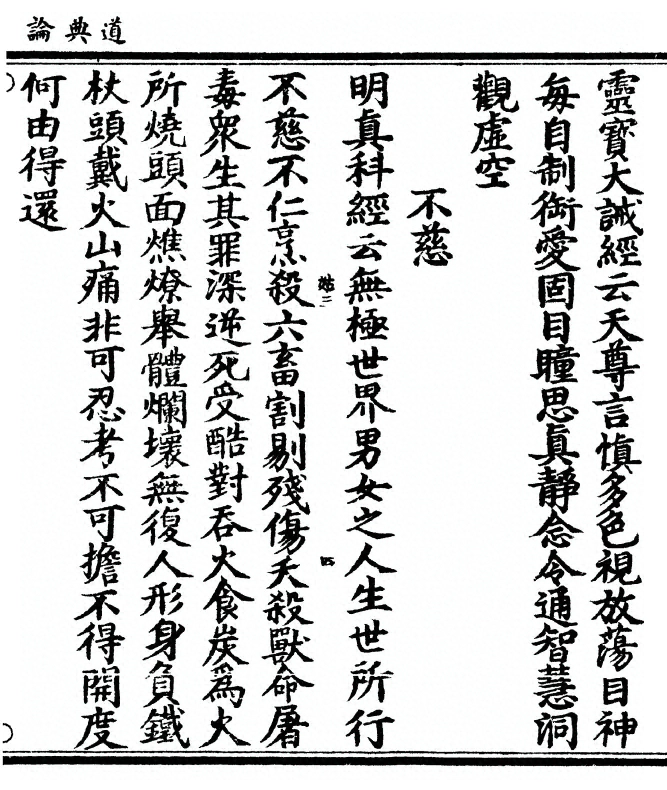 道典論
靈寶大誡經云天尊言慎多色視放蕩目神
每自制御愛固目瞳思真靜念令通智慧洞
觀虛空
不慈
明真科經云無極世界男女之人生世所行
不慈不仁烹殺六畜割剔殘傷夭殺獸命屠
毒衆生其罪深逆死受酷對吞火食炭為火
所燒頭面燋燎舉體爛壞無復人形身負鐵
杖頭戴火山痛非可忍考不可擔不得開度
何由得還